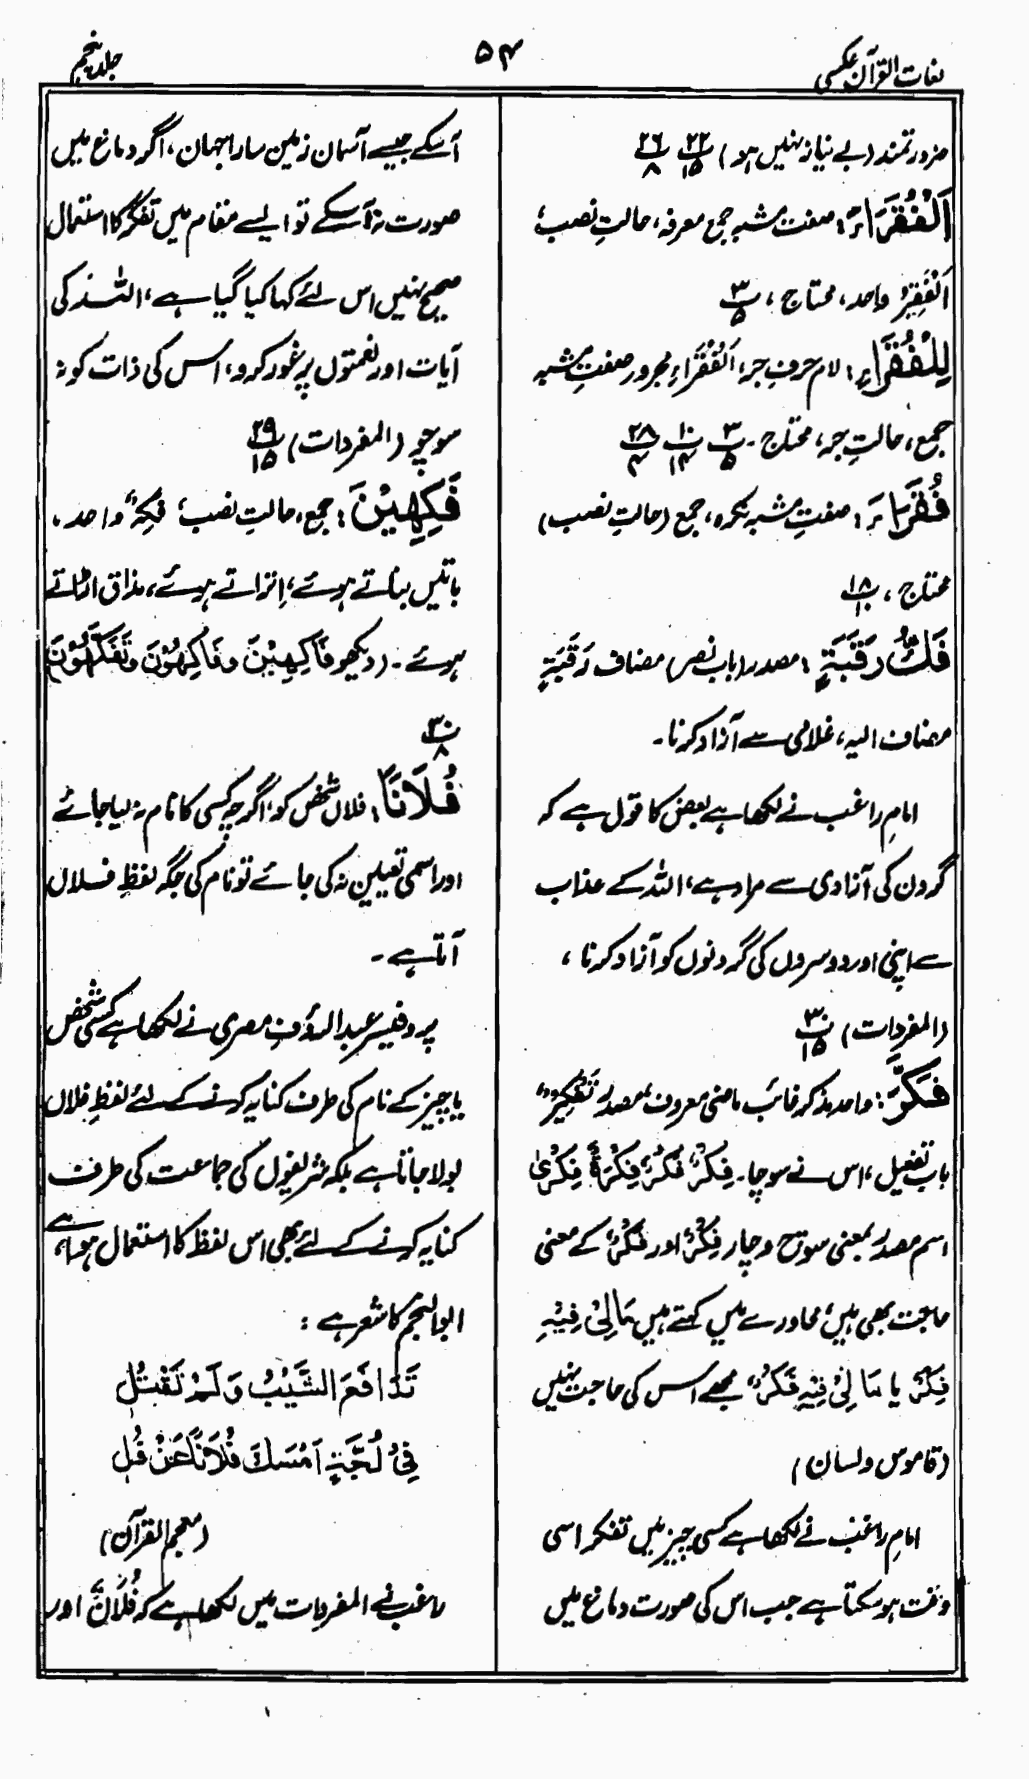 لغات القرآن عکسی
۵۴
جلد پنجم
ضرورتمند (بے نیاز نہیں ہو) ۲۲/۱۵ ۲۶/۸
اَلْفُقَرَاءَ: صفت مشبہ جمع معرفہ، حالتِ نصب،
اَلْفَقِیْرُ واحد، محتاج، ۳/۵
لِلْفُقَرَاءِ: لام حرفِ جر، اَلْفُقَرَاءِ مجرور صفتِ مشبہ
جمع، حالتِ جر، محتاج۔ ۳/۵ ۱۰/۱۴ ۲۸/۴
فُقَرَاءَ: صفتِ مشبہ نکرہ، جمع (حالتِ نصب)
محتاج، ۱۸/۱۰
فَكُّ رَقَبَةٍ: مصدر (باب نصر) مضاف رَقَبَةٍ
مضاف الیہ، غلامی سے آزاد کرنا۔
امامِ راغب نے لکھا ہے بعض کا قول ہے کہ
گردن کی آزادی سے مراد ہے، اللہ کے عذاب
سے اپنی اور دوسروں کی گردنوں کو آزاد کرنا،
(المفردات) ۳۰/۱۵
فَكَّرَ: واحد مذکر غائب ماضی معروف، مصدر تَفْكِیْرٌ،
باب تفعیل، اس نے سوچا۔ فِكْرٌ، فَكْرٌ، فِكْرَةٌ، فِكْرٰى
اسم مصدر بمعنی سوچ وچار فِكْرٌ اور فَكْرٌ کے معنی
حاجت بھی ہیں، محاورے میں کہتے ہیں مَالِیْ فِیْهِ
فِكْرٌ یا مَالِیْ فِیْهِ فَكْرٌ، مجھے اس کی حاجت نہیں
(قاموس ولسان)
امامِ راغب نے لکھا ہے کسی چیز میں تفکر اسی
وقت ہوسکتا ہے جب اس کی صورت دماغ میں
آسکے جیسے آسمان زمین سارا جہان، اگر دماغ میں
صورت نہ آسکے تو ایسے مقام میں تفکر کا استعمال
صحیح نہیں اس لئے کہا گیا ہے، اللہ کی
آیات اور نعمتوں پر غور کرو، اس کی ذات کو نہ
سوچو (المفردات) ۲۹/۱۵
فَكِهِیْنَ: جمع، حالتِ نصب، فَكِهٌ واحد،
باتیں بناتے ہوئے، اِتراتے ہوئے، مذاق اڑاتے
ہوئے۔ (دیکھو فَاكِهِیْنَ وفَاكِهُوْنَ وتَفَكَّهُوْنَ)
۳۰/۸
فُلَانًا: فلاں شخص کو، اگرچہ کسی کا نام نہ لیا جائے
اور اسمی تعیین نہ کی جائے تو نام کی جگہ لفظِ فلاں
آتا ہے۔
پروفیسر عبد الرؤف مصری نے لکھا ہے کسی شخص
یا چیز کے نام کی طرف کنایہ کرنے کے لئے لفظِ فلاں
بولا جاتا ہے بلکہ شریفوں کی جماعت کی طرف
کنایہ کرنے کے لئے بھی اس لفظ کا استعمال ہوا ہے،
ابو النجم کا شعر ہے:
تَدَافَعَ الشَّیْبُ وَلَمْ تَقْتُلِ
فِیْ لُجَّةٍ اَمْسَكَ فُلَانًا عَنْ فُلِ
(معجم القرآن)
راغب نے المفردات میں لکھا ہے کہ فُلَانٌ اور